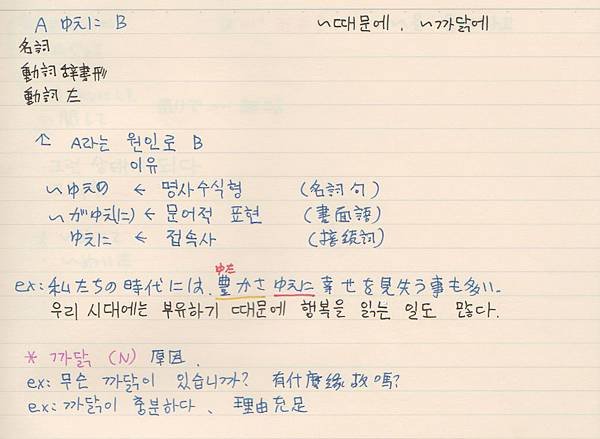 A ゆえに B ~때문에, ~까닭에
名詞
動詞辞書形
動詞 た
↑ A라는 원인로 B
이유
~ゆえの ← 명사수식형 (名詞句)
~がゆえ(に) ← 문어적 표현 (書面語)
ゆえに ← 접속사 (接続詞)
ゆた
ex: 私たちの時代には、豊かさゆえに幸せを見失う事も多い.
우리 시대에는 부유하기 때문에 행복을 잃는 일도 많다.
* 까닭 (N) 原因.
ex: 무슨 까닭이 있습니까? 有什麼緣故嗎?
ex: 까닭이 충분하다、理由充足